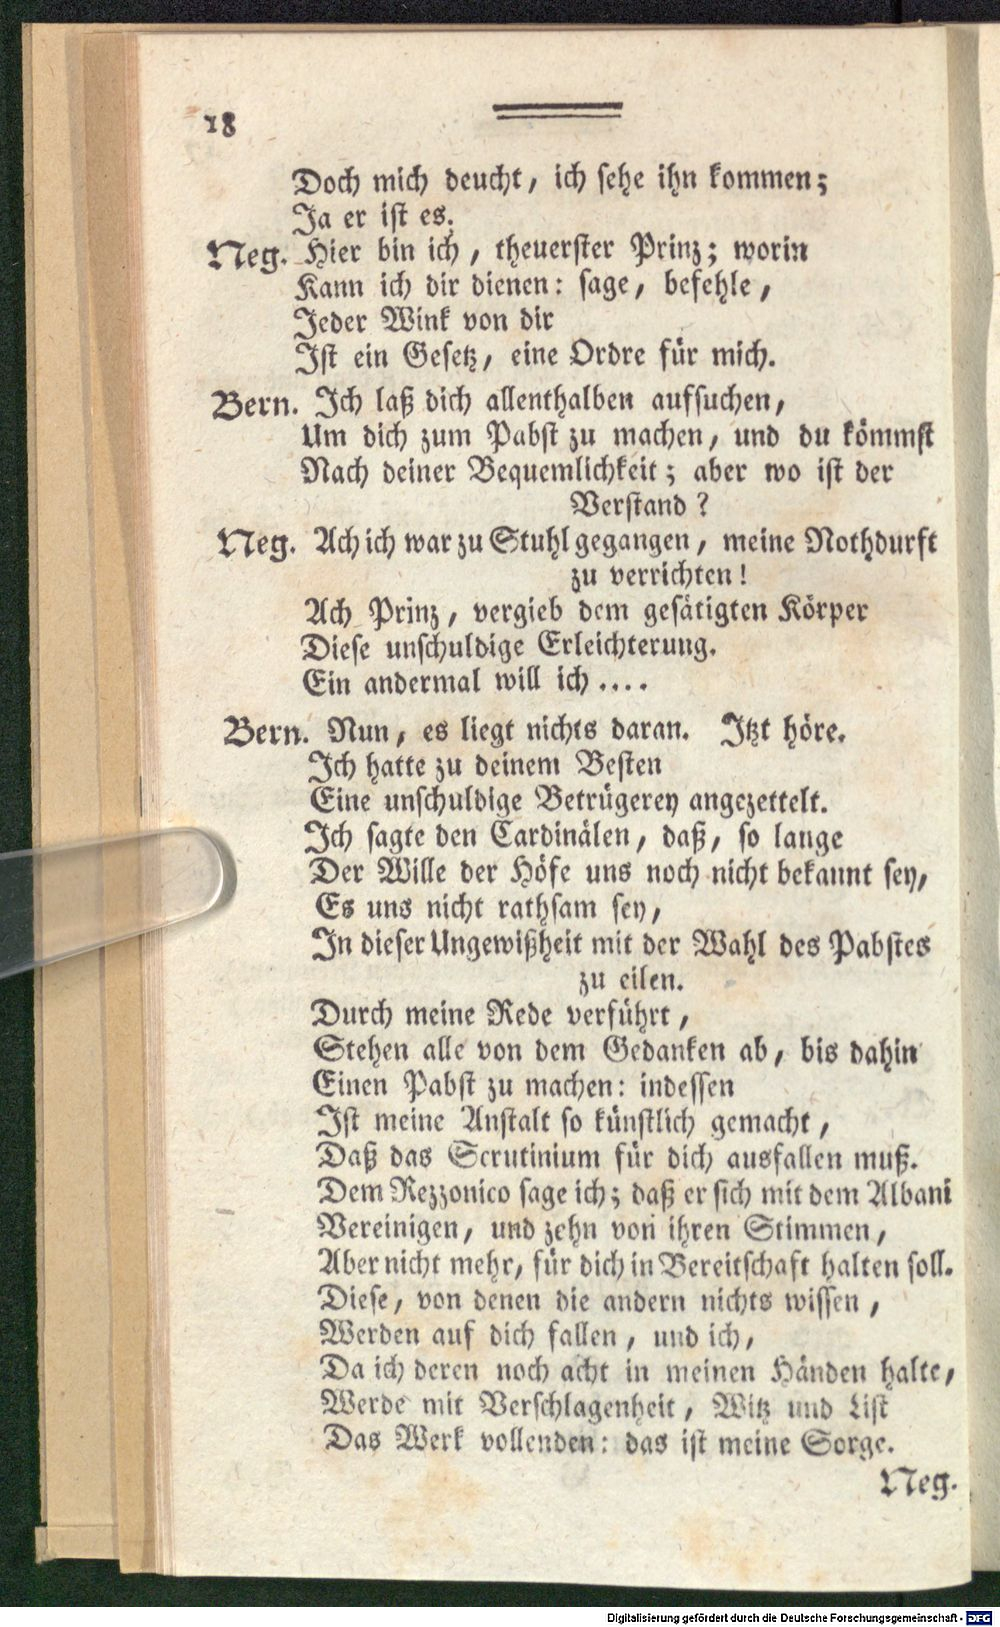 18
Doch mich deucht, ich sehe ihn kommen;
Ja er ist es.
Neg. Hier bin ich, theuerster Prinz; worin
Kann ich dir dienen: sage, befehle,
Jeder Wink von dir
Ist ein Gesetz, eine Ordre für mich.
Bern. Ich laß dich allenthalben aufsuchen,
Um dich zum Pabst zu machen, und du kömmst
Nach deiner Bequemlichkeit; aber wo ist der
Verstand?
Neg. Ach ich war zu Stuhl gegangen, meine Nothdurft
zu verrichten!
Ach Prinz, vergieb dem gesätigten Körper
Diese unschuldige Erleichterung.
Ein andermal will ich....
Bern. Nun, es liegt nichts daran. Itzt höre.
Ich hatte zu deinem Besten
Eine unschuldige Betrügerey angezettelt.
Ich sagte den Cardinälen, daß, so lange
Der Wille der Höfe uns noch nicht bekannt sey,
Es uns nicht rathsam sey,
In dieser Ungewißheit mit der Wahl des Pabstes
zu eilen.
Durch meine Rede verführt,
Stehen alle von dem Gedanken ab, bis dahin
Einen Pabst zu machen: indessen
Ist meine Anstalt so künstlich gemacht,
Daß das Scrutinium für dich ausfallen muß.
Dem Rezzonico sage ich; daß er sich mit dem Albani
Vereinigen, und zehn von ihren Stimmen,
Aber nicht mehr, für dich in Bereitschaft halten soll.
Diese, von denen die andern nichts wissen,
Werden auf dich fallen, und ich,
Da ich deren noch acht in meinen Händen halte,
Werde mit Verschlagenheit, Witz und List
Das Werk vollenden: das ist meine Sorge.
Neg.
Digitalisierung gefördert durch die Deutsche Forschungsgemeinschaft - DFG